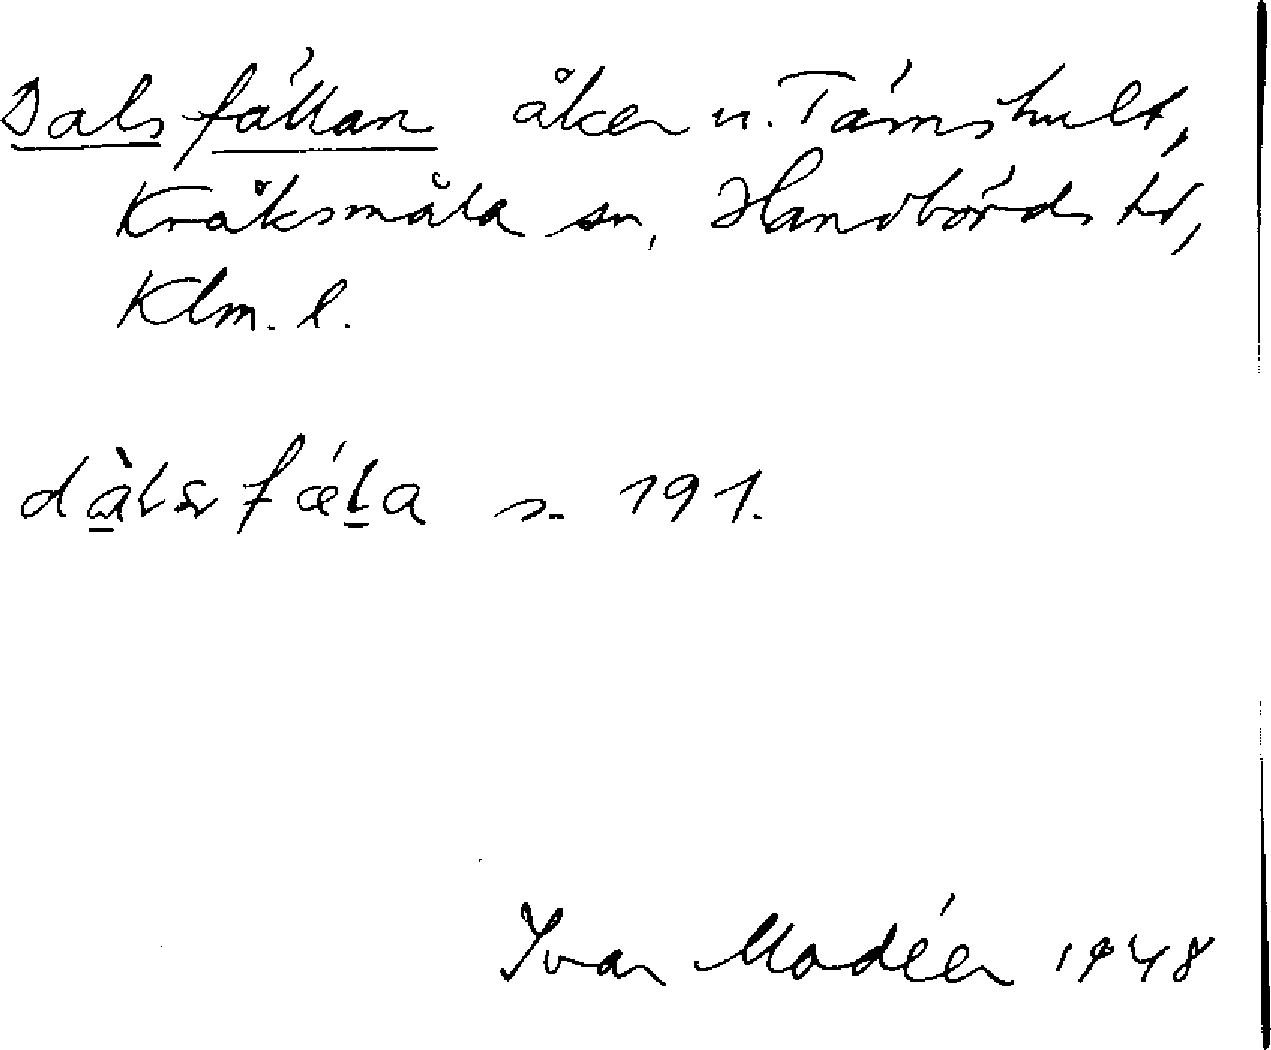 Dalsfällan åker u. Tämshult,
Kråksmåla sn, Handbörds hd,
Klm. l.
dàlsfǽla s. 191.
Ivar Modéer 1948